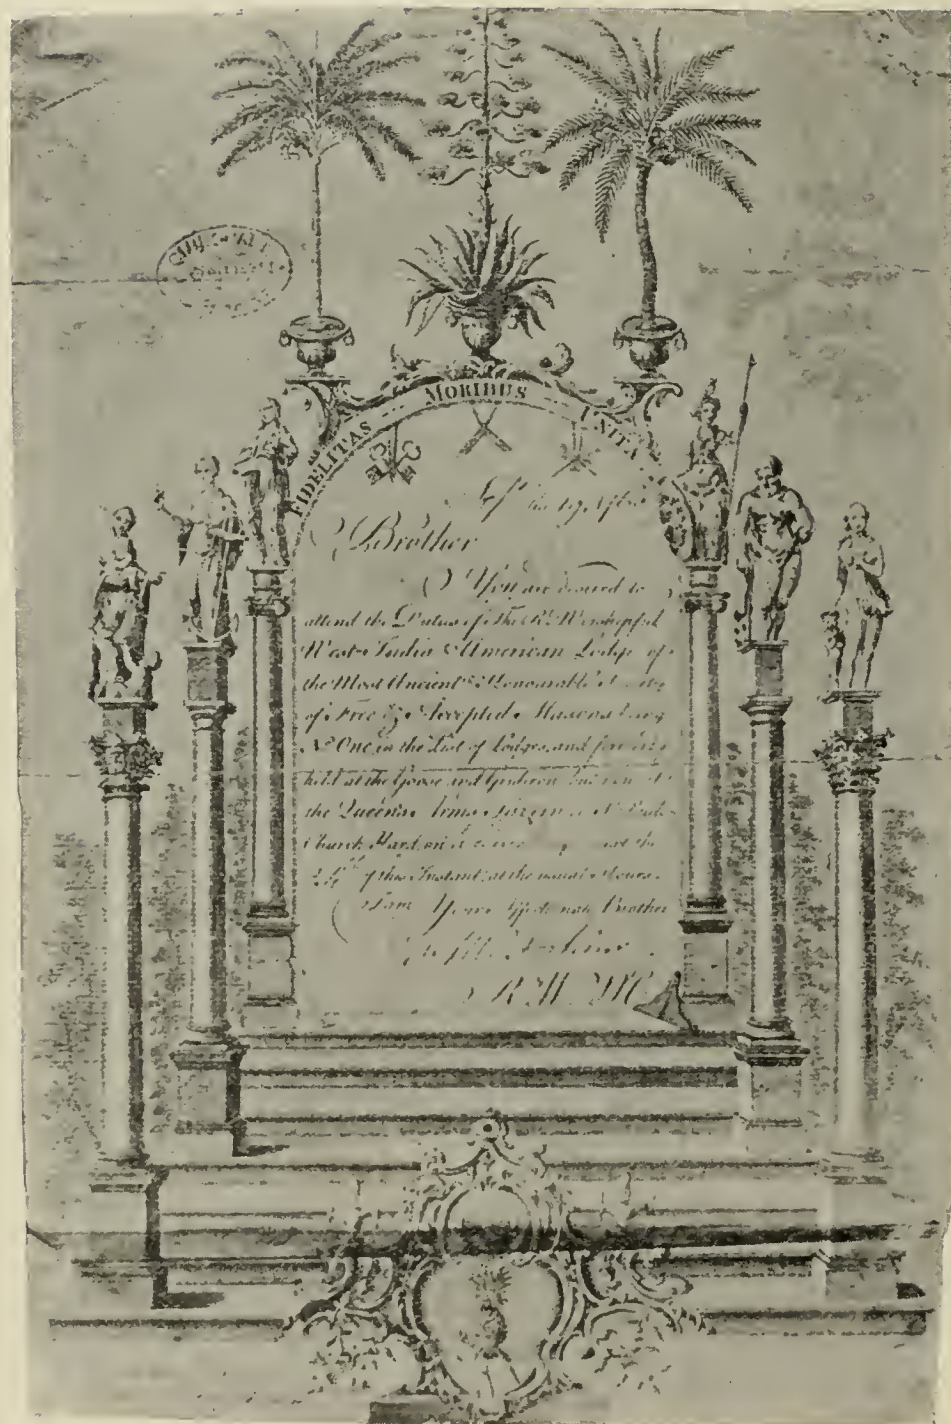 FIDELITAS MORIBUS UNITA
Brother
You are desired to
attend the Duties of the Rt. Worshipful
West India & American Lodge of
the Most Ancient & Honourable Society
of Free & Accepted Masons being
No. One in the List of Lodges and formerly
held at the Goose and Gridiron but now at
the Queen's Arms Tavern in St. Pauls
Church Yard on
of this Instant at the usual Hour
I am Your Affectionate Brother
R W M